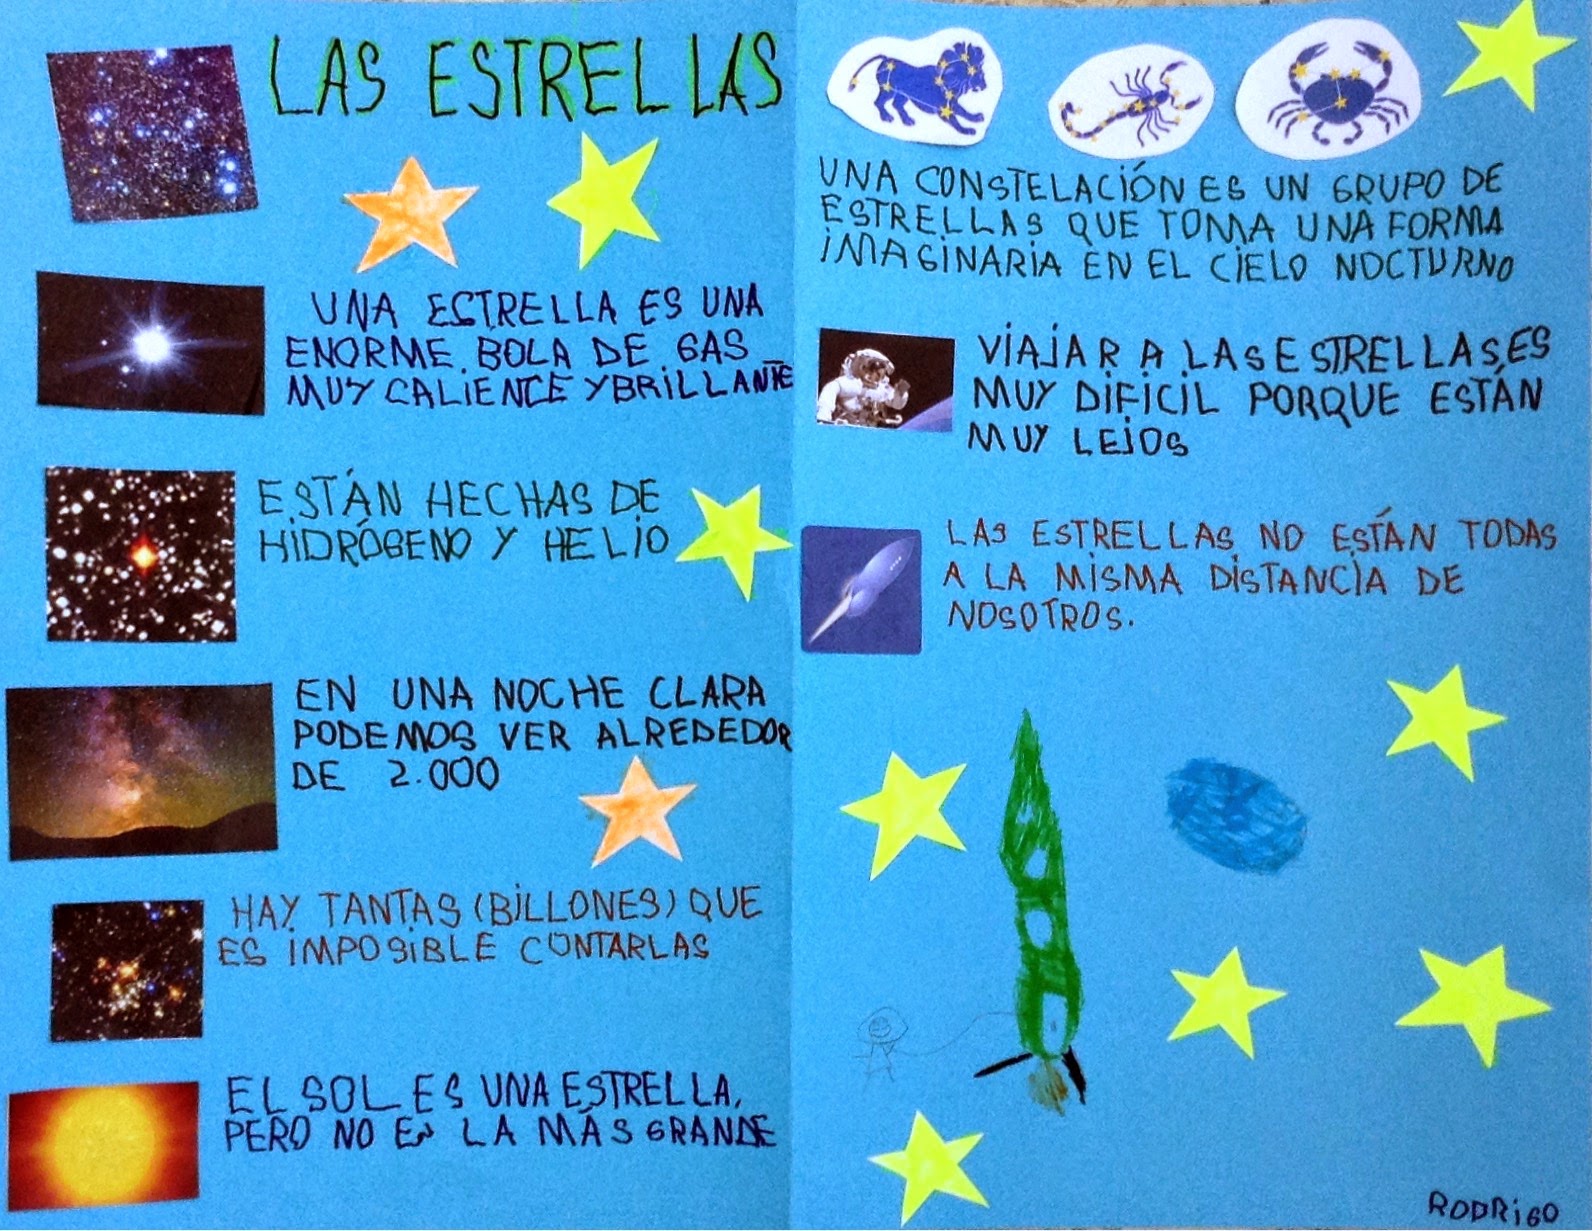 LAS ESTRELLAS
UNA ESTRELLA ES UNA
ENORME BOLA DE GAS
MUY CALIENTE Y BRILLANTE
ESTÁN HECHAS DE
HIDRÓGENO Y HELIO
EN UNA NOCHE CLARA
PODEMOS VER ALREDEDOR
DE 2.000
HAY TANTAS (BILLONES) QUE
ES IMPOSIBLE CONTARLAS
EL SOL ES UNA ESTRELLA,
PERO NO EN LA MÁS GRANDE
UNA CONSTELACIÓN ES UN GRUPO DE
ESTRELLAS QUE TOMA UNA FORMA
IMAGINARIA EN EL CIELO NOCTURNO
VIAJAR A LAS ESTRELLAS ES
MUY DIFICIL PORQUE ESTÁN
MUY LEJOS
LAS ESTRELLAS NO ESTÁN TODAS
A LA MISMA DISTANCIA DE
NOSOTROS.
RODRIGO